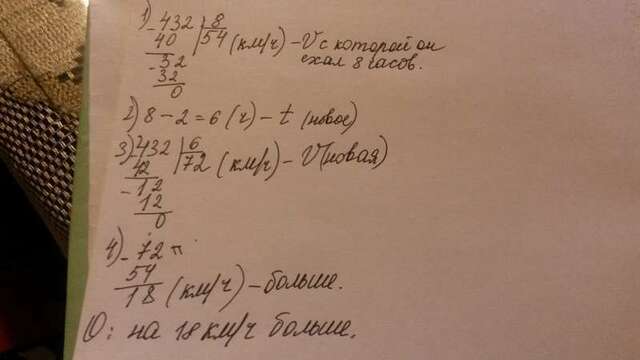 1) - 432 | 8
40 | 54 (км/ч) - V с которой он
- 32 ехал 8 часов.
32
0
2) 8 - 2 = 6 (ч) - t (новое)
3) - 432 | 6
42 | 72 (км/ч) - V (новая)
- 12
12
0
4) - 72
54
18 (км/ч) - больше.
О: на 18 км/ч больше.